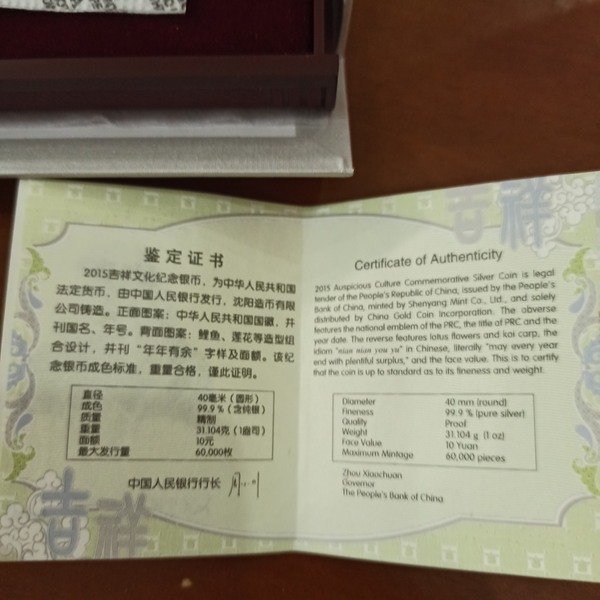 鉴定证书
2015吉祥文化纪念银币，为中华人民共和国
法定货币，由中国人民银行发行，沈阳造币有限
公司铸造。正面图案：中华人民共和国国徽，并
刊国名、年号。背面图案：鲤鱼、莲花等造型组
合设计，并刊“年年有余”字样及面额。该纪
念银币成色标准，重量合格，谨此证明。
直径 40毫米（圆形）
成色 99.9％（含纯银）
质量 精制
重量 31.104克（1盎司）
面额 10元
最大发行量 60,000枚
中国人民银行行长
吉祥
Certificate of Authenticity
2015 Auspicious Culture Commemorative Silver Coin is legal
tender of the People's Republic of China, issued by the People's
Bank of China, minted by Shenyang Mint Co., Ltd., and solely
distributed by China Gold Coin Incorporation. The abverse
features the national emblem of the PRC, the title of PRC and the
year date. The reverse features lotus flowers and koi carp, the
idiom "nian nian you yu" in Chinese, literally "may every year
end with plentiful surplus," and the face value. This is to certify
that the coin is up to standard as to its fineness and weight.
Diameter 40 mm (round)
Fineness 99.9 % (pure silver)
Quality Proof
Weight 31.104 g (1 oz)
Face Value 10 Yuan
Maximum Mintage 60,000 pieces
Zhou Xiaochuan
Governor
The People's Bank of China
吉祥